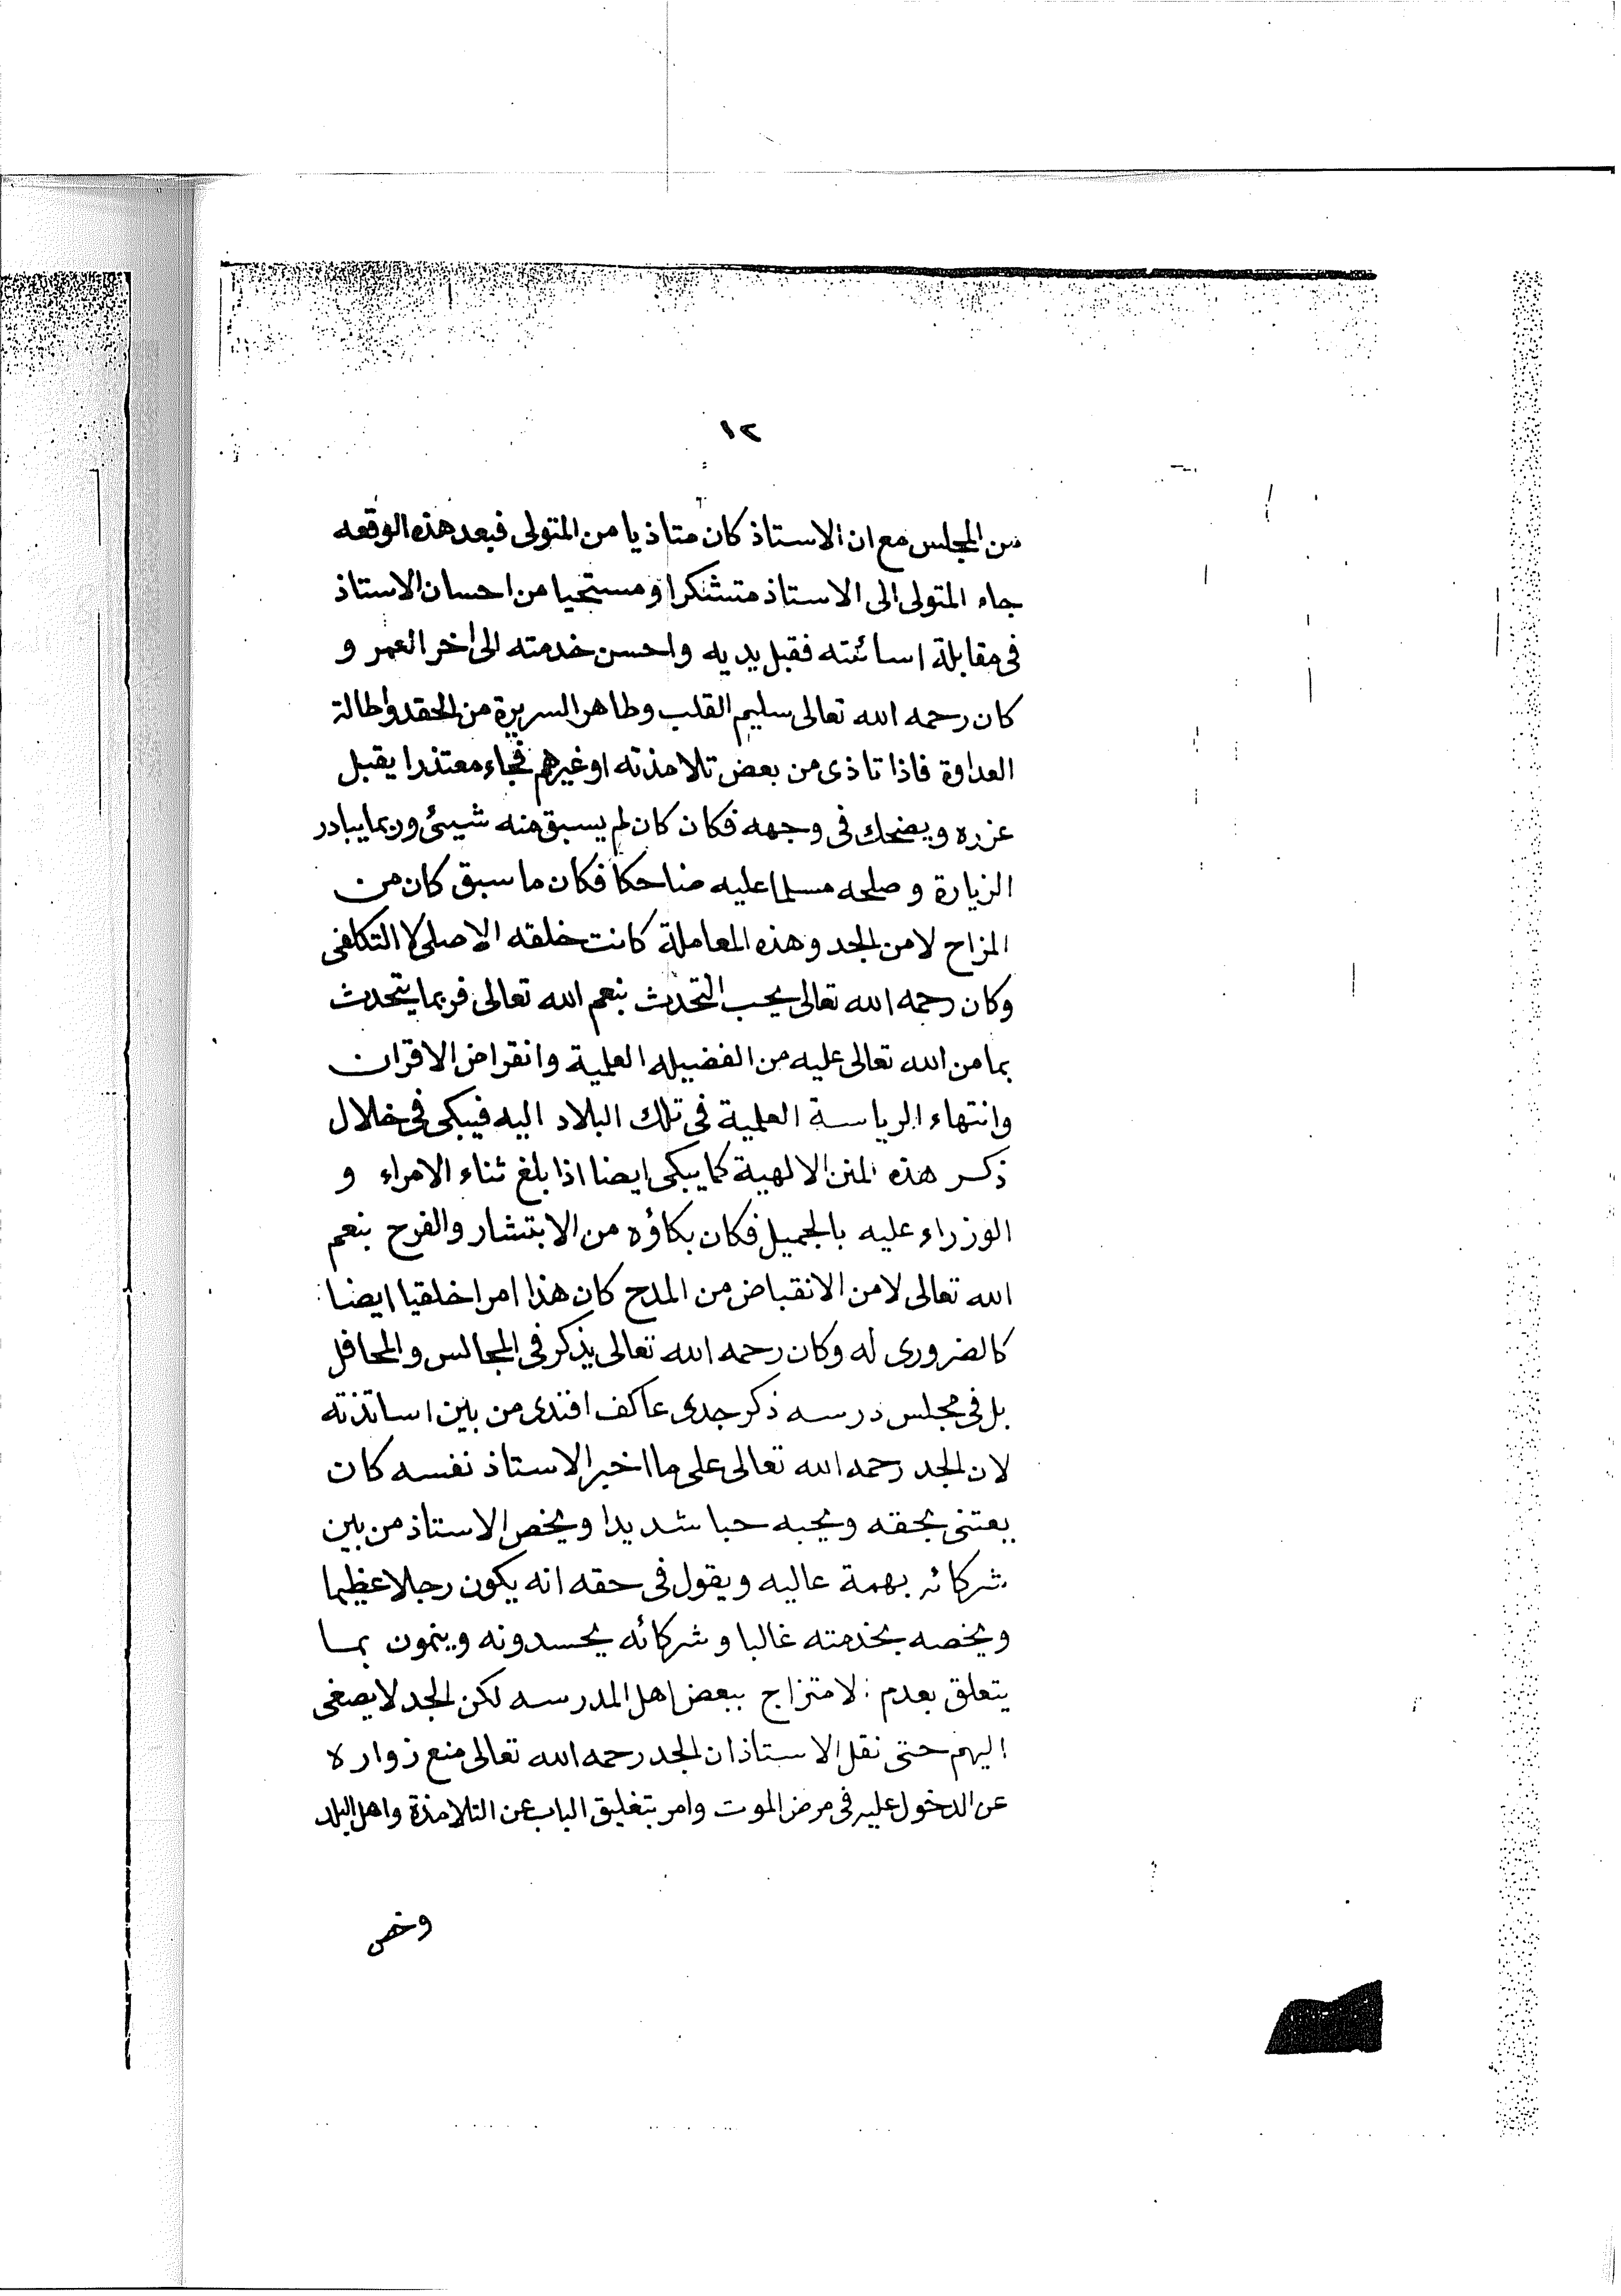 ١٢
من المجلس مع ان الاستاذ كان متاذيا من المتولى فبعد هذه الوقعه
جاء المتولى الى الاستاذ متشكرا ومستحيا من احسان الاستاذ
فى مقابلة اسائته فقبل يديه واحسن خدمته الى اخر العمر و
كان رحمه الله تعالى سليم القلب وطاهر السريرة من الحقد واطالة
العداوة فاذا تاذى من بعض تلامذته او غيرهم فجاء معتذرا يقبل
عزره ويضحك فى وجهه فكان كان لم يسبق منه شيئ وربما يبادر
الزيارة و صلحه مسلما عليه ضاحكا فكان ما سبق كان من
المزاح لا من الجد وهذه المعاملة كانت خلقه الاصلى لا التكلفى
وكان رحمه الله تعالى يحب التحدث بنعم الله تعالى فربما يتحدث
بما من الله تعالى عليه من الفضيله العلمية وانقراض الاقران
وانتهاء الرياسة العلمية فى تلك البلاد اليه فيبكى فى خلال
ذكر هذه المنن الالهية كما يبكى ايضا اذا بلغ ثناء الامراء و
الوزراء عليه بالجميل فكان بكاؤه من الابتشار والفرح بنعم
الله تعالى لا من الانقباض من المدح كان هذا امرا خلقيا ايضا
كالضرورى له وكان رحمه الله تعالى يذكر فى المجالس والمحافل
بل فى مجلس درسه ذكر جدى عاكف افندى من بين اساتذته
لان الجد رحمه الله تعالى على ما اخبر الاستاذ نفسه كان
يعتنى بحقه ويحبه حبا شديدا ويخص الاستاذ من بين
شركائه بهمة عاليه ويقول فى حقه انه يكون رجلا عظيما
ويخصه بخدمته غالبا وشركائه يحسدونه وينمون بما
يتعلق بعدم الامتزاج ببعض اهل المدرسه لكن الجد لا يصغى
اليهم حتى نقل الاستاذ ان الجد رحمه الله تعالى منع زواره
عن الدخول عليه فى مرض الموت وامر بتغليق الباب عن التلامذة واهل البلد
وخص